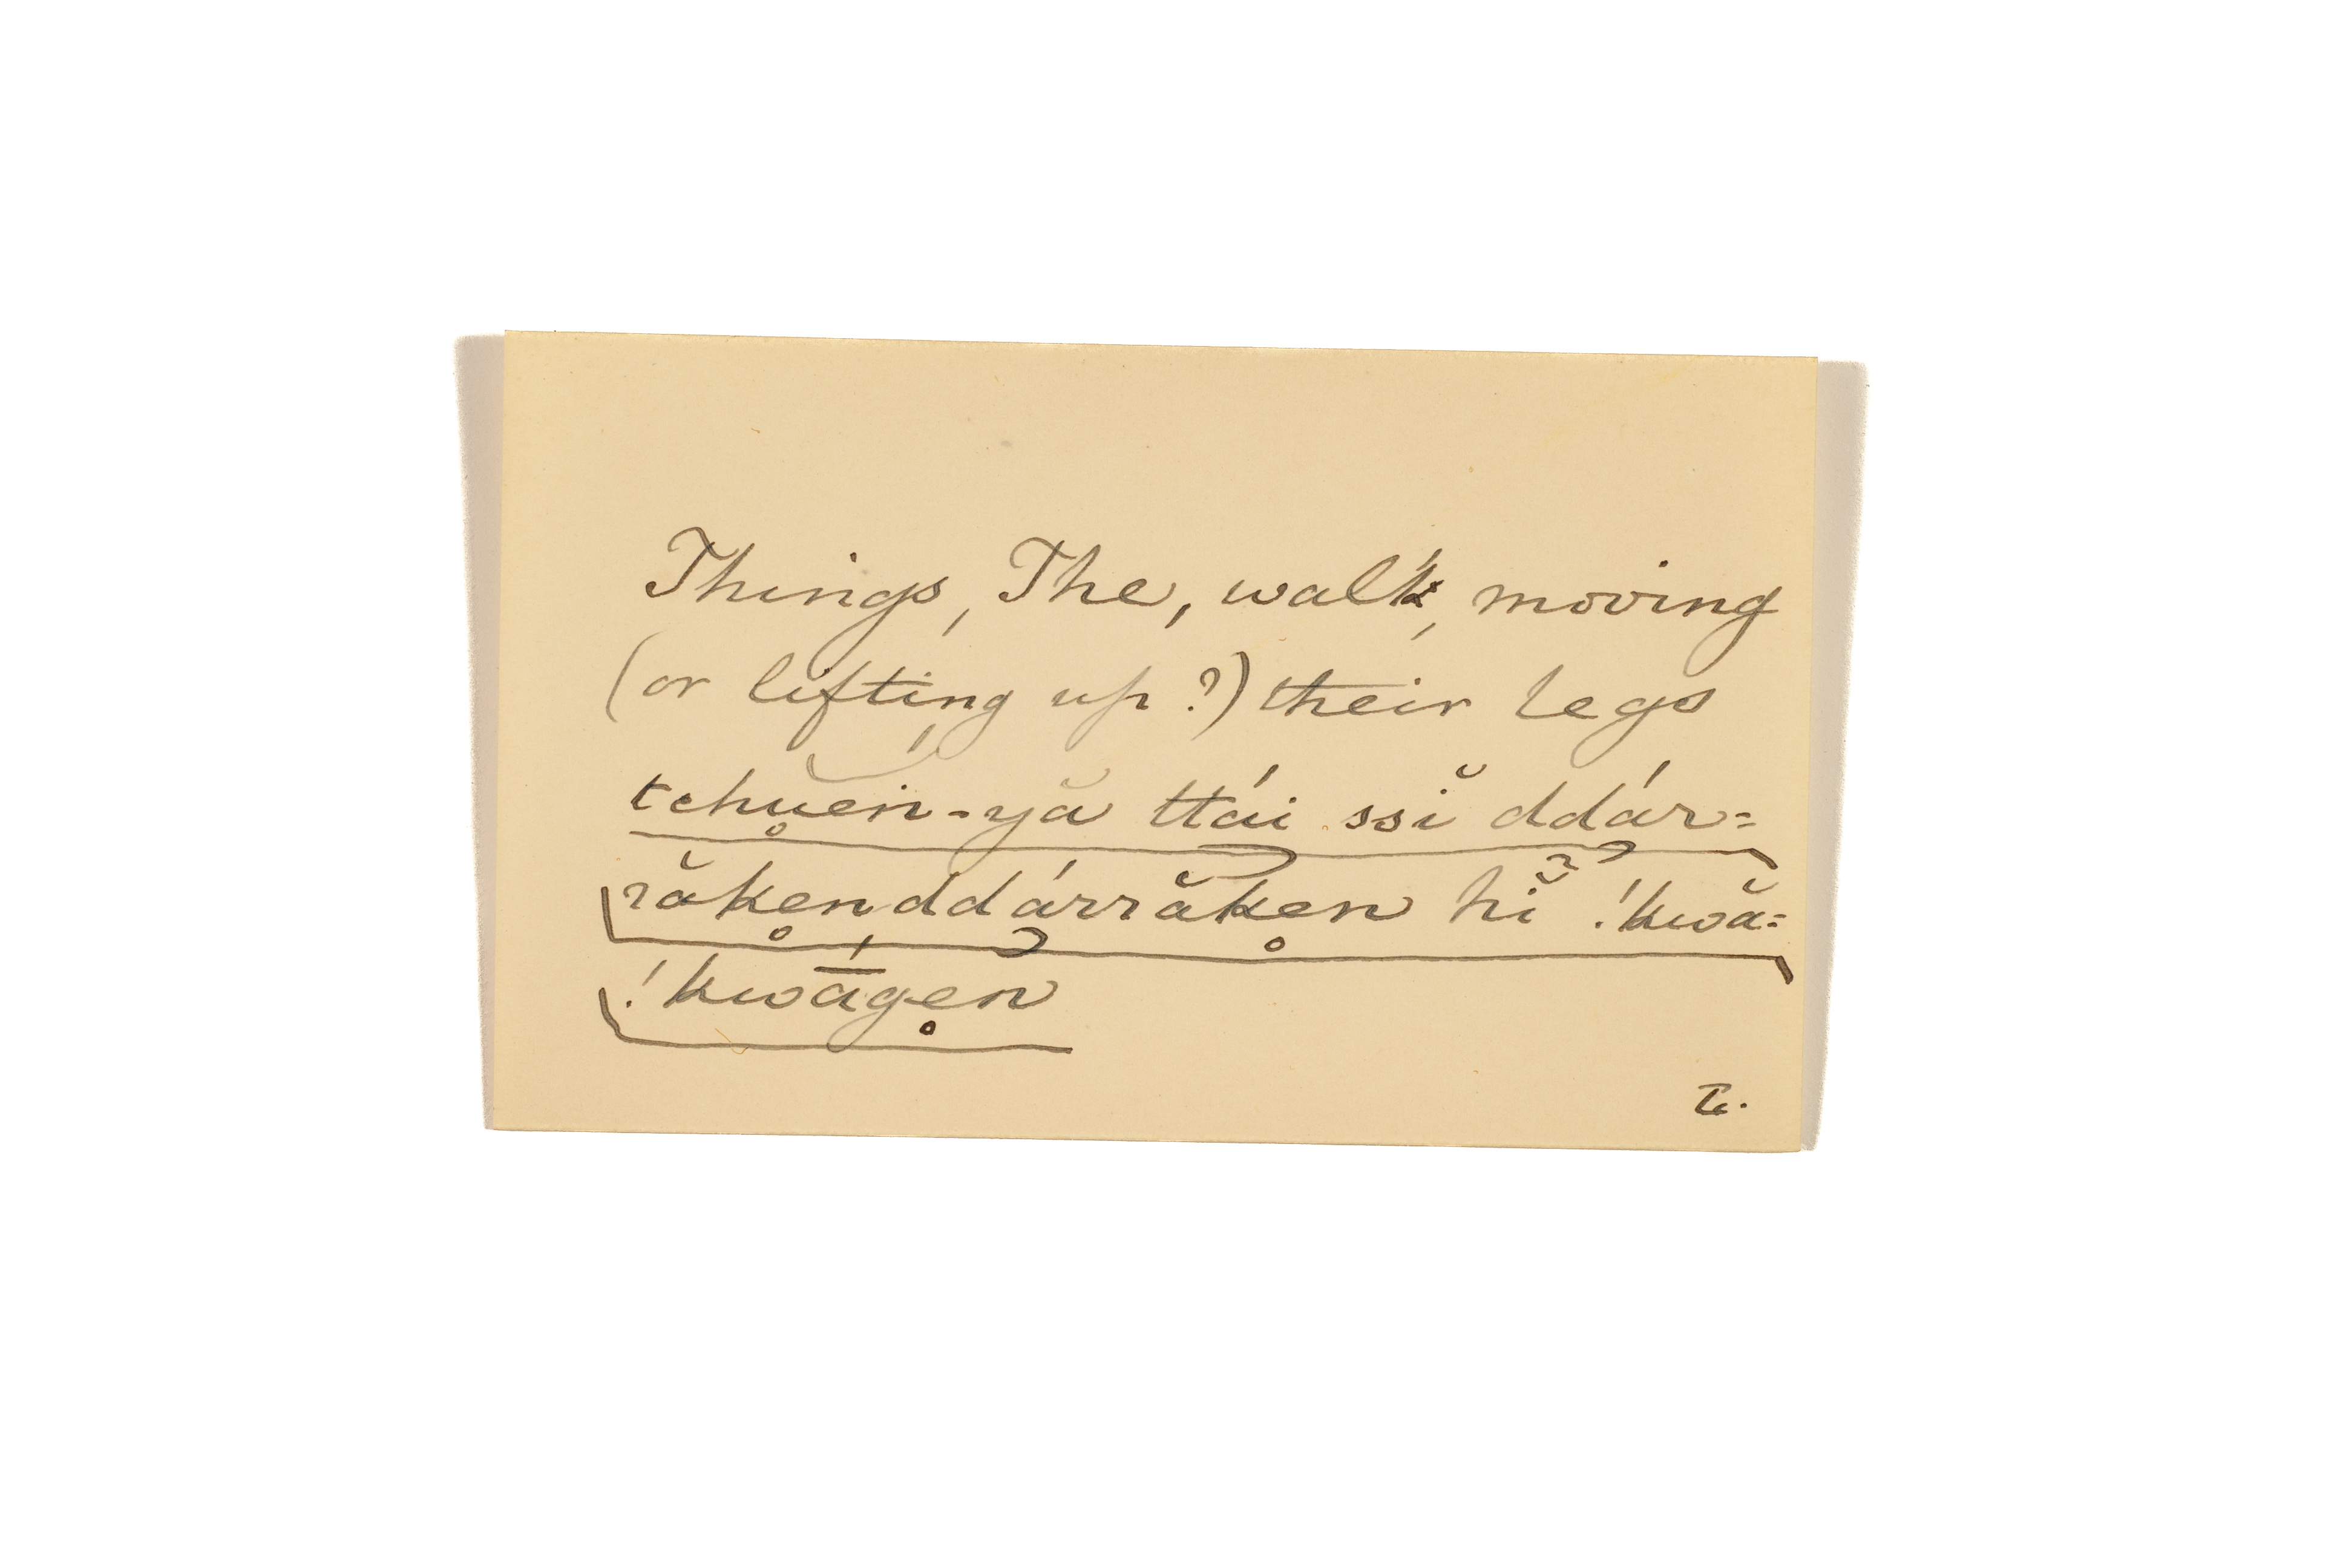 Things, The, walk, moving
(or lifting up?) their legs
tchu̥en-yă ttái ssĭ ddár=
răke̥nddárrăke̥n hĭ !kwă=
!kwā́ge̥n